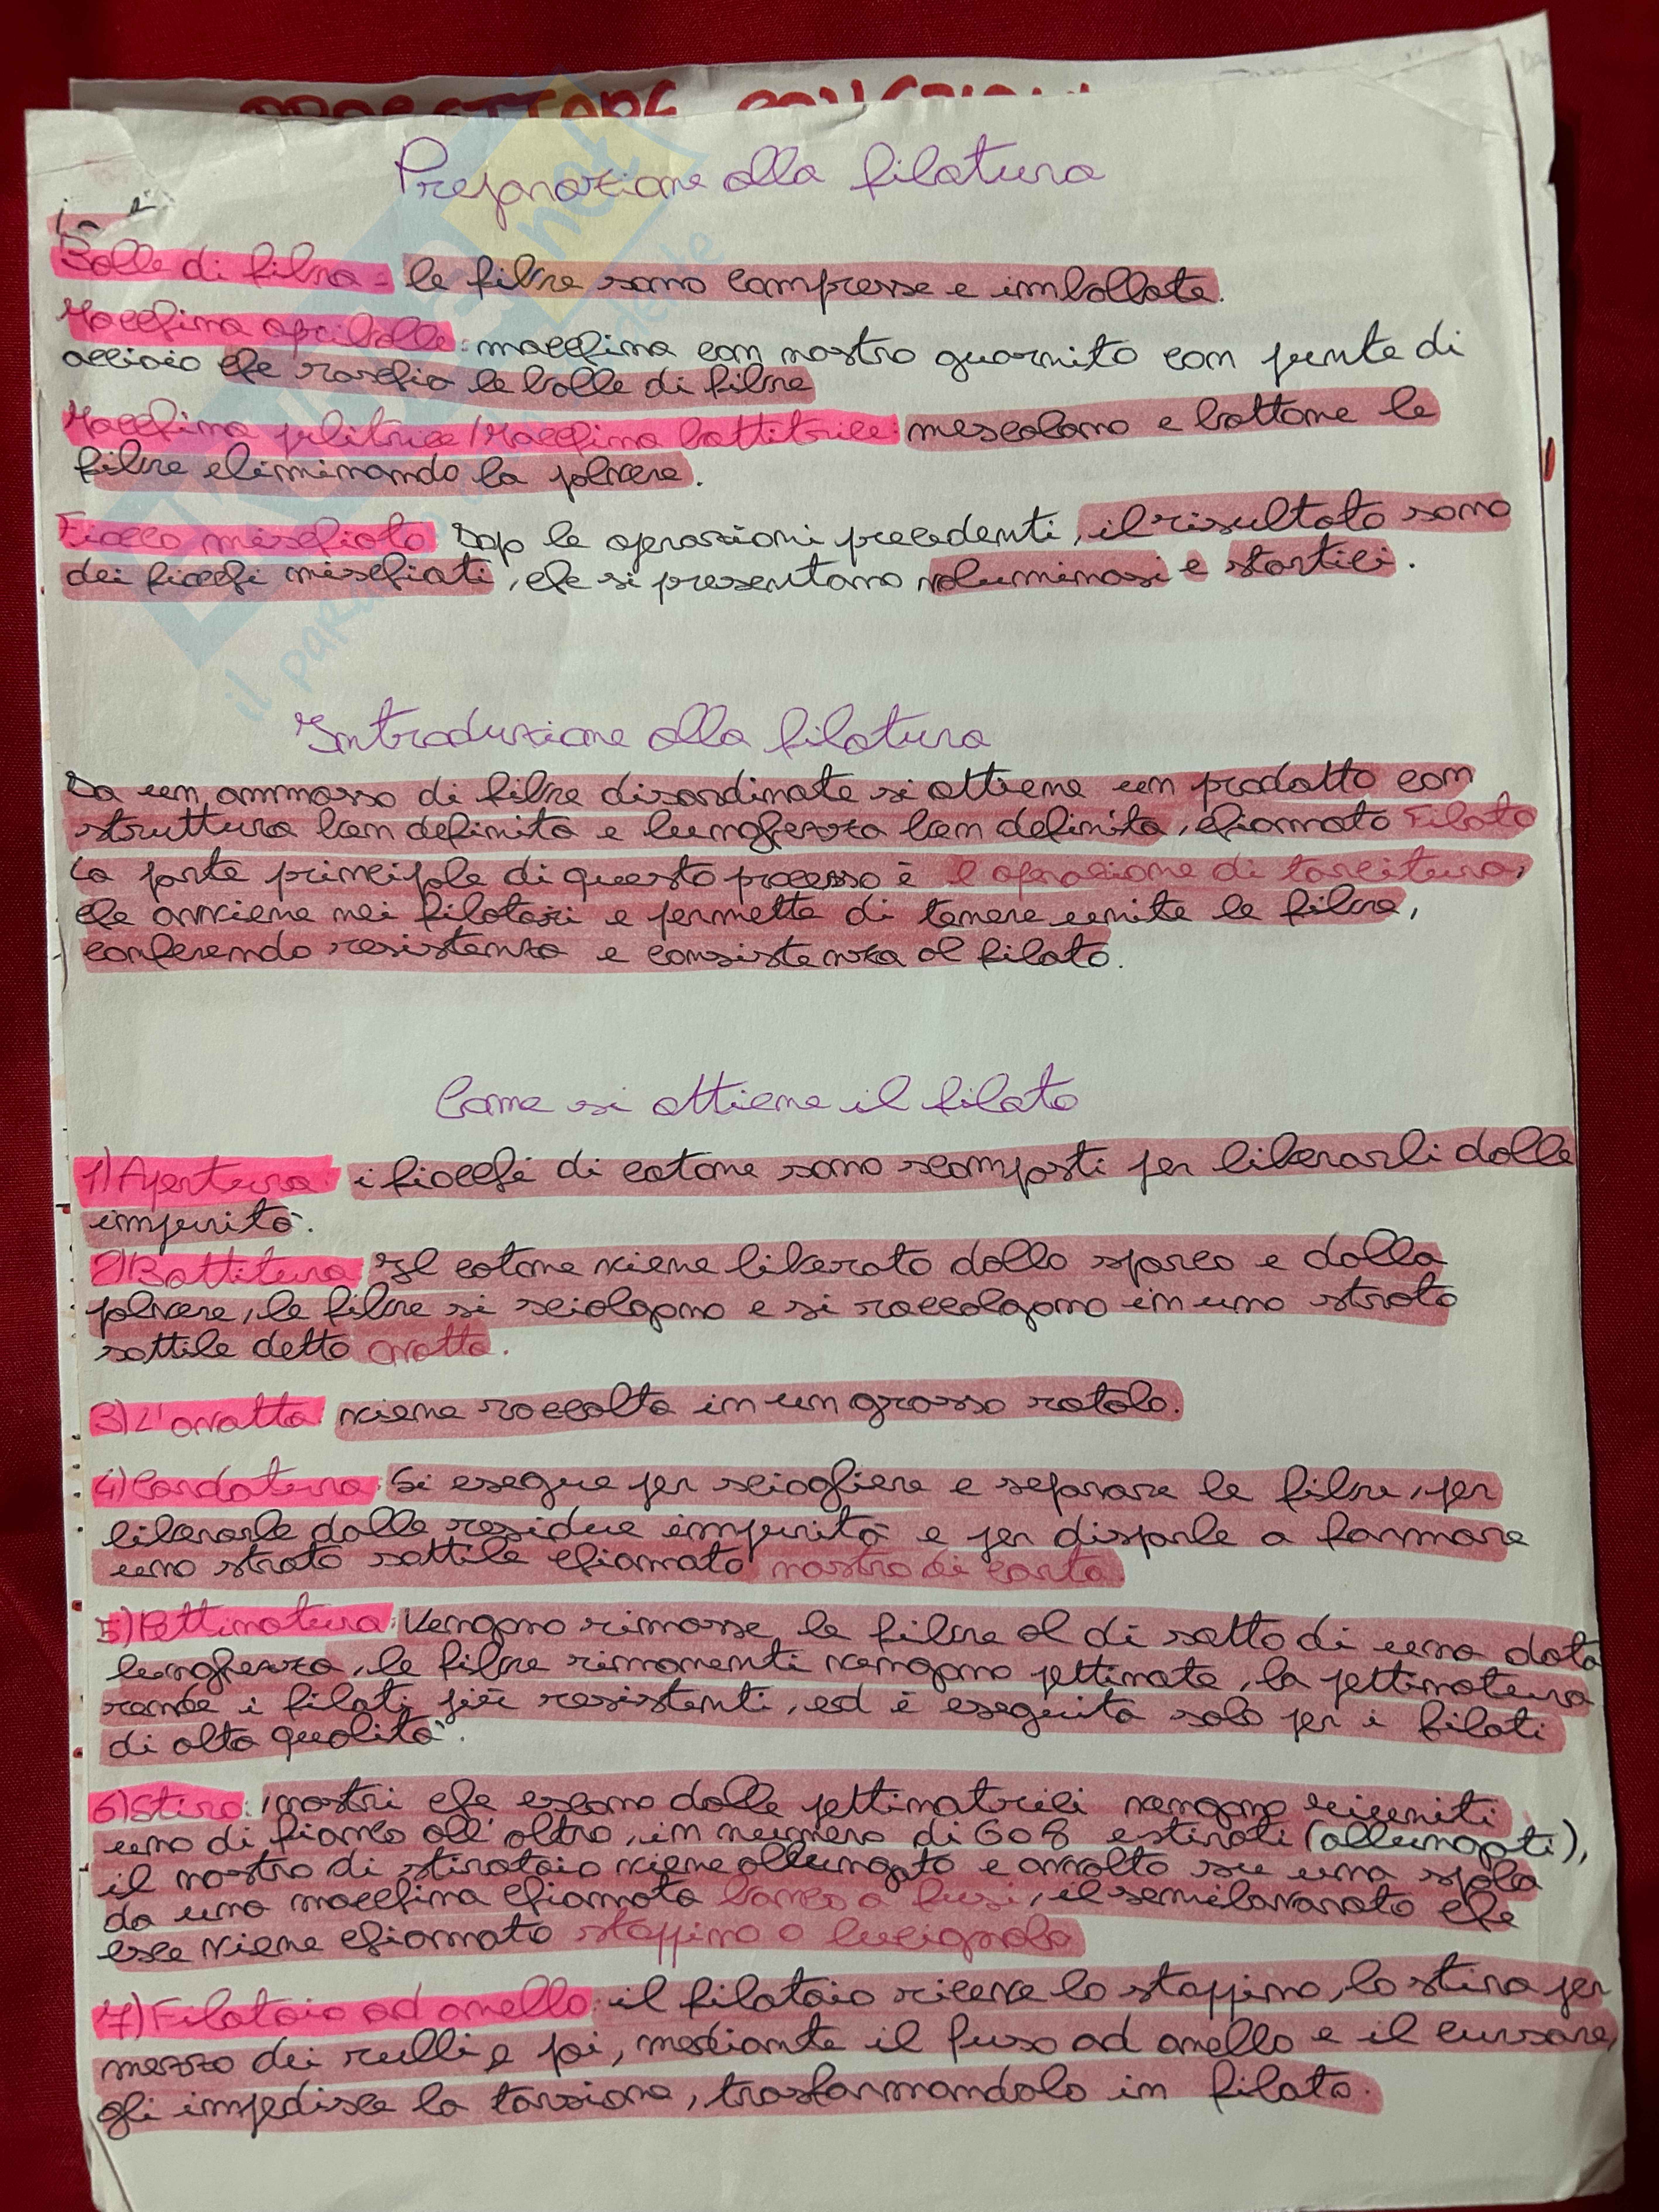 Preparazione alla filatura
Balle di fibra = le fibre sono compresse e imballate.
Macchina apriballe: macchina con nastro guarnito con punte di
acciaio che raschia le balle di fibre
Macchina pulitrice/Macchina battitrice: mescolano e battone le
fibre eliminando la polvere.
Fiocco mischiato Dopo le operazioni precedenti, il risultato sono
dei fiocchi mischiati, che si presentano voluminosi e stortili.
Introduzione alla filatura
Da un ammasso di fibre disordinate si ottiene un prodotto con
struttura ben definita e lunghezza ben definita, chiamato Filato
La parte principale di questo processo è l'operazione di torcitura,
che avviene nei filatoi e permette di tenere unite le fibre,
conferendo resistenza e consistenza al filato.
Come si ottiene il filato
1) Apertura: i fiocchi di cotone sono scomposti per liberarli dalle
impurità.
2) Battitura Il cotone viene liberato dallo sporco e dalla
polvere, le fibre si sciolgono e si raccolgono in uno strato
sottile detto ovatta.
3) L'ovatta viene raccolta in un grosso rotolo.
4) Cardatura: Si esegue per sciogliere e separare le fibre, per
liberarle dalle residue impurità e per disporle a formare
uno strato sottile chiamato nastro di carta
5) Pettinatura: Vengono rimosse le fibre al di sotto di una data
lunghezza, le fibre rimanenti vengono pettinate, la pettinatura
rende i filati più resistenti, ed è eseguita solo per i filati
di alta qualità.
6) Stiro: i nastri che escono dalle pettinatrici vengono riuniti
uno di fianco all'altro, in numero di 6 o 8 e stirati (allungati),
il nastro di stiratoio viene allungato e avvolto su una spola
da una macchina chiamata banco a fusi, il semilavorato che
esce viene chiamato stoppino o lucignolo
7) Filatoio ad anello: il filatoio riceve lo stoppino, lo stira per
mezzo dei rulli e poi, mediante il fuso ad anello e il cursore,
gli impedisce la torsione, trasformandolo in filato.